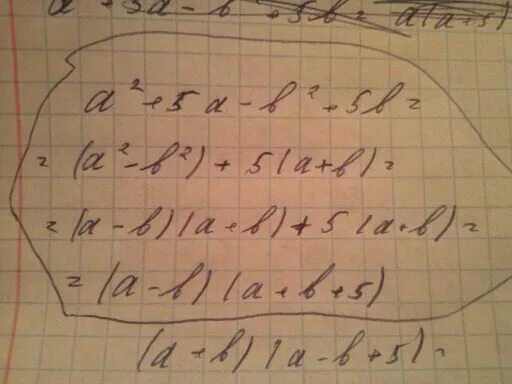 a² + 5a - b² + 5b =
= (a² - b²) + 5(a + b) =
= (a - b)(a + b) + 5(a + b) =
= (a - b)(a + b + 5)
(a + b)(a - b + 5) =